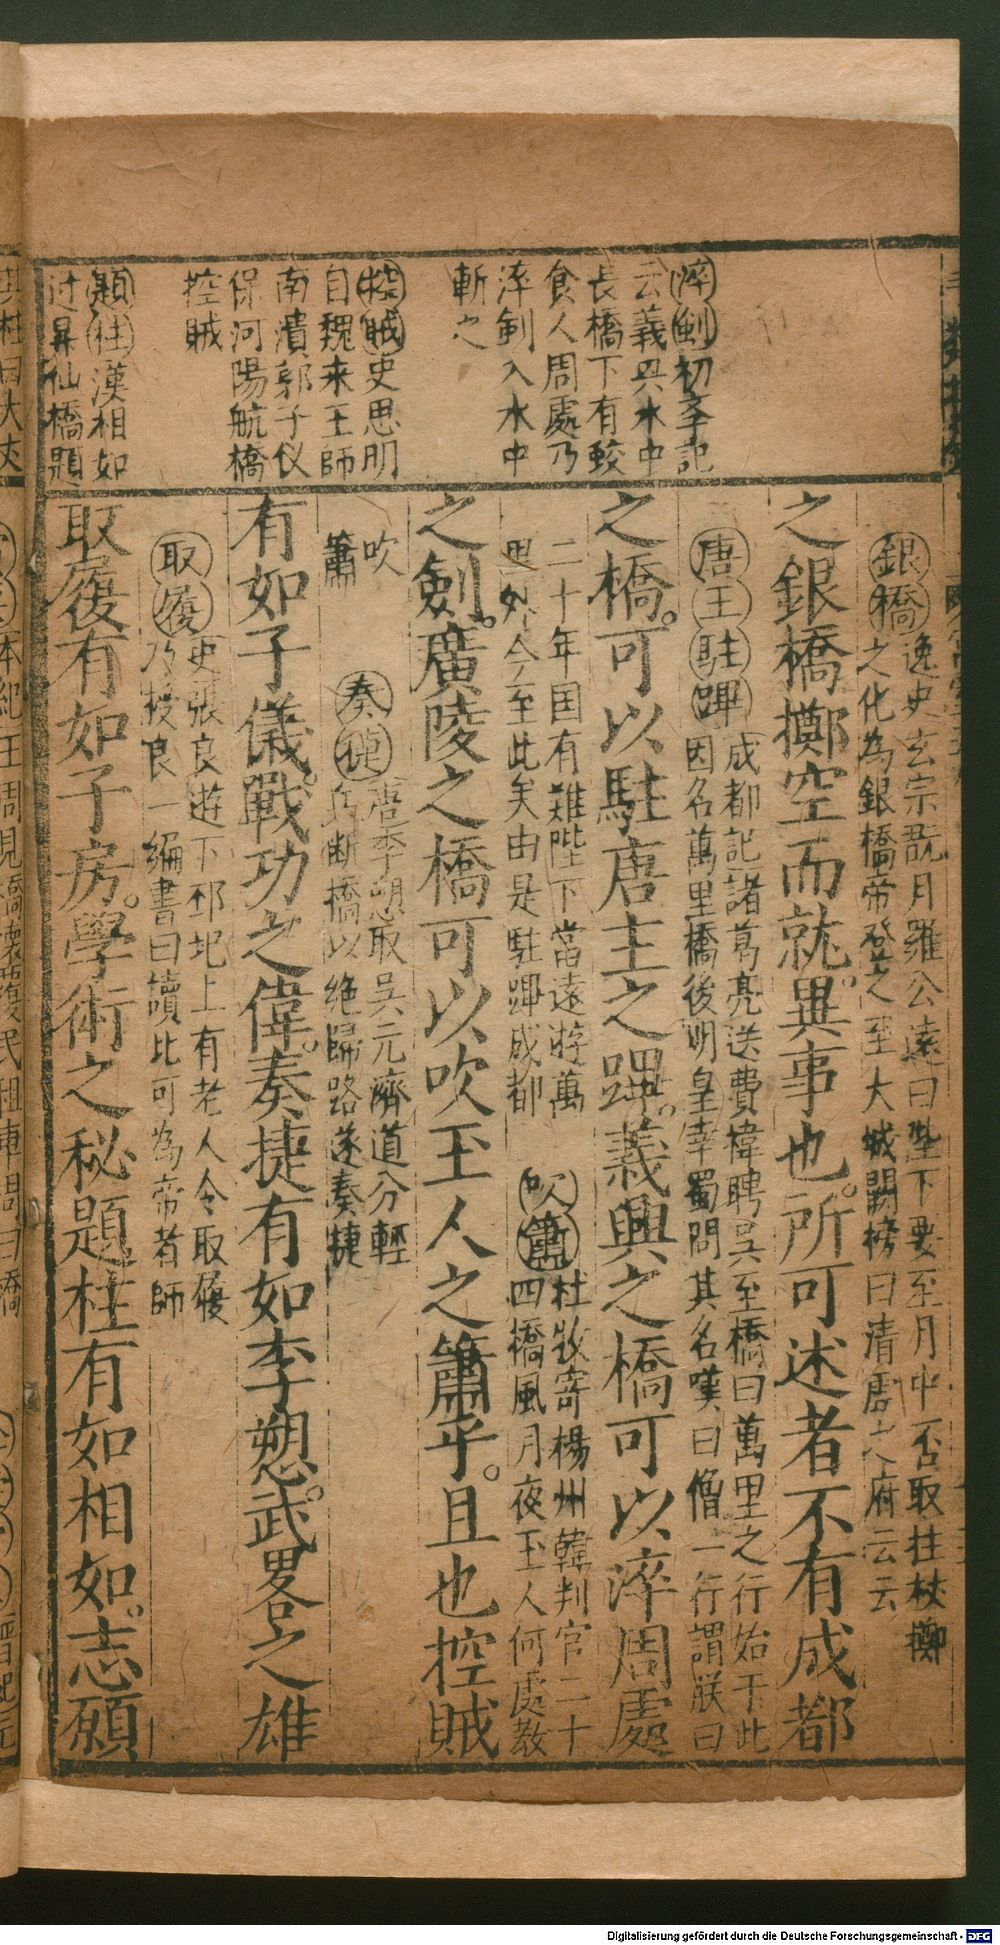 淬劍初學記
云義興水中
長橋下有蛟
食人周處乃
淬劍入水中
斬之
控賊史思明
自魏来王師
南潰郭子仪
保河陽航橋
控賊
題柱漢相如
过昇仙橋題
銀橋逸史玄宗翫月羅公遠曰陛下要至月中否取拄杖擲
之化為銀橋帝登之至大城闕榜曰清虚之府云云
之銀橋擲空而就異事也。所可述者不有成都
唐王駐蹕成都記諸葛亮送費禕聘吴至橋曰萬里之行始于此
因名萬里橋後明皇幸蜀問其名嘆曰僧一行謂朕曰
之橋。可以駐唐主之蹕。義興之橋可以淬周處
二十年国有難陛下當遠遊萬
里外今至此矣由是駐蹕成都
吹簫杜牧寄楊州韓判官二十
四橋風月夜玉人何處教
之劍。廣陵之橋可以吹玉人之簫乎。且也控賊
吹
簫
奏徢唐李愬取吴元濟道分輕
兵断橋以绝歸路遂奏捷
有如子儀。戰功之偉。奏捷有如李愬。武畧之雄
取履史張良遊下邳圯上有老人令取履
乃授良一編書曰讀此可為帝者師
取履有如子房。學術之秘題柱有如相如。志願